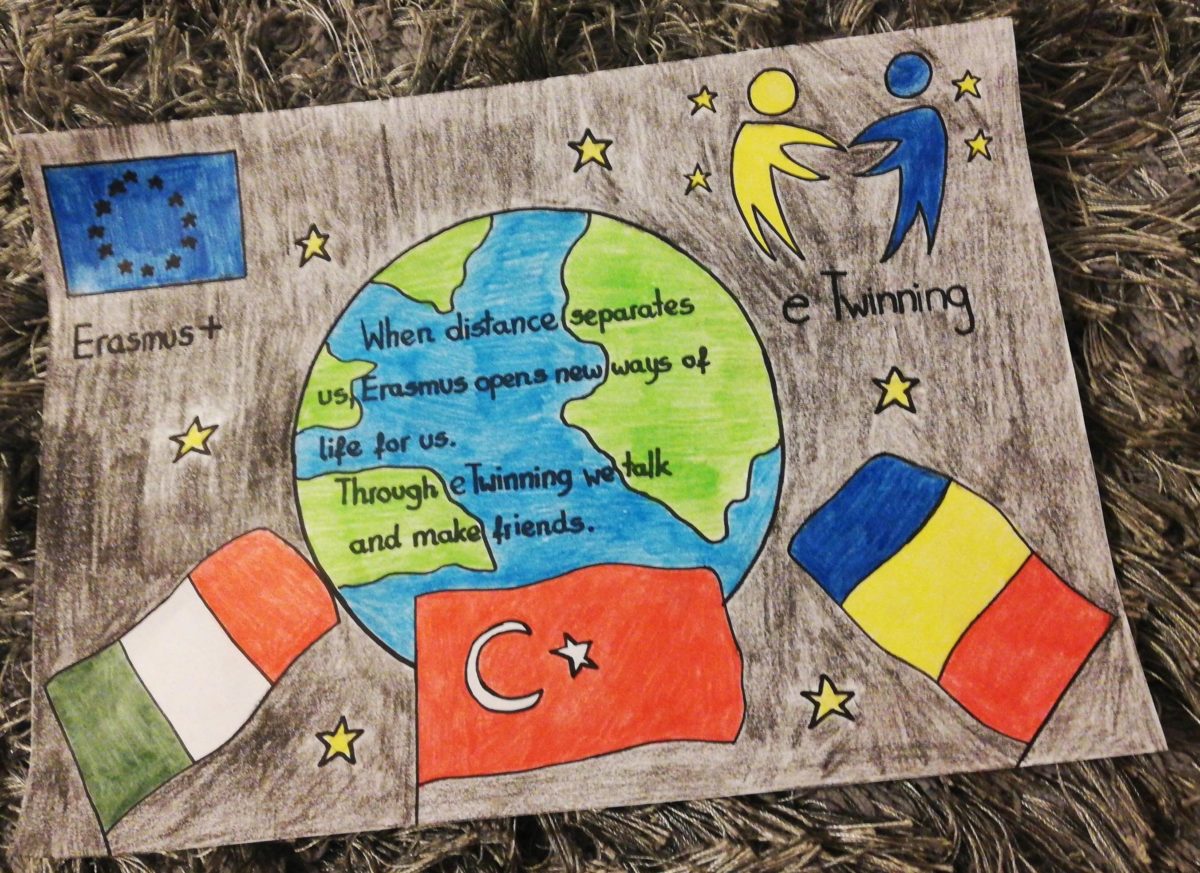 Erasmus+
e Twinning
When distance separates
us, Erasmus opens new ways of
life for us.
Through eTwinning we talk
and make friends.